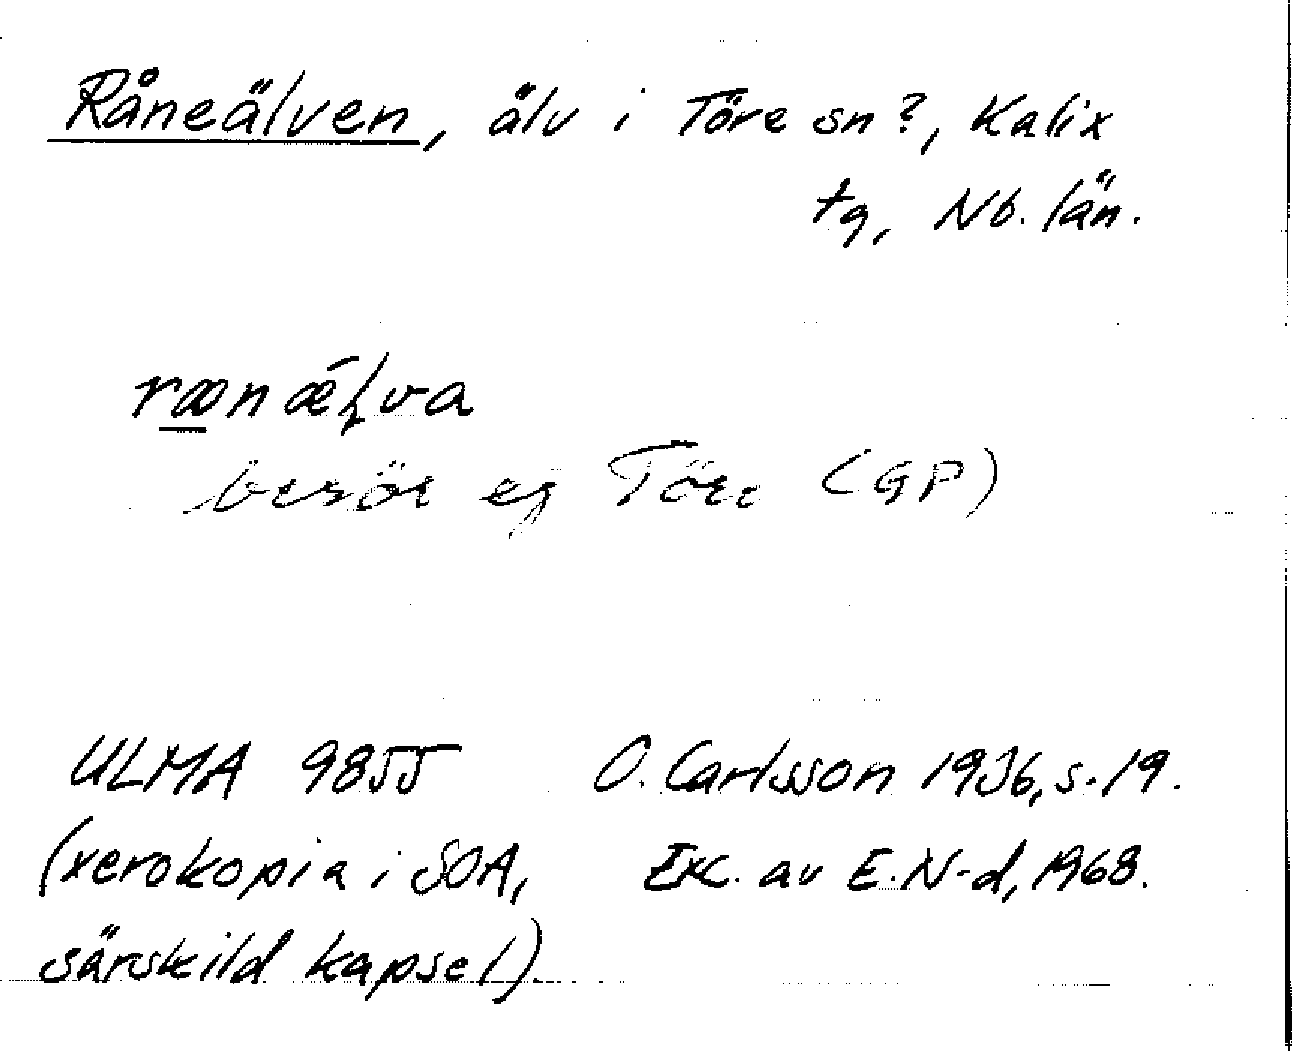 Råneälven, älv i Töre sn?, Kalix
tg, Nb. län.
rænǽl̥va
berör ej Töre (GP)
ULMA 9855 O. Carlsson 1936, s. 19.
(xerokopia i SOA, Exc. av E. N-d, 1968.
särskild kapsel).